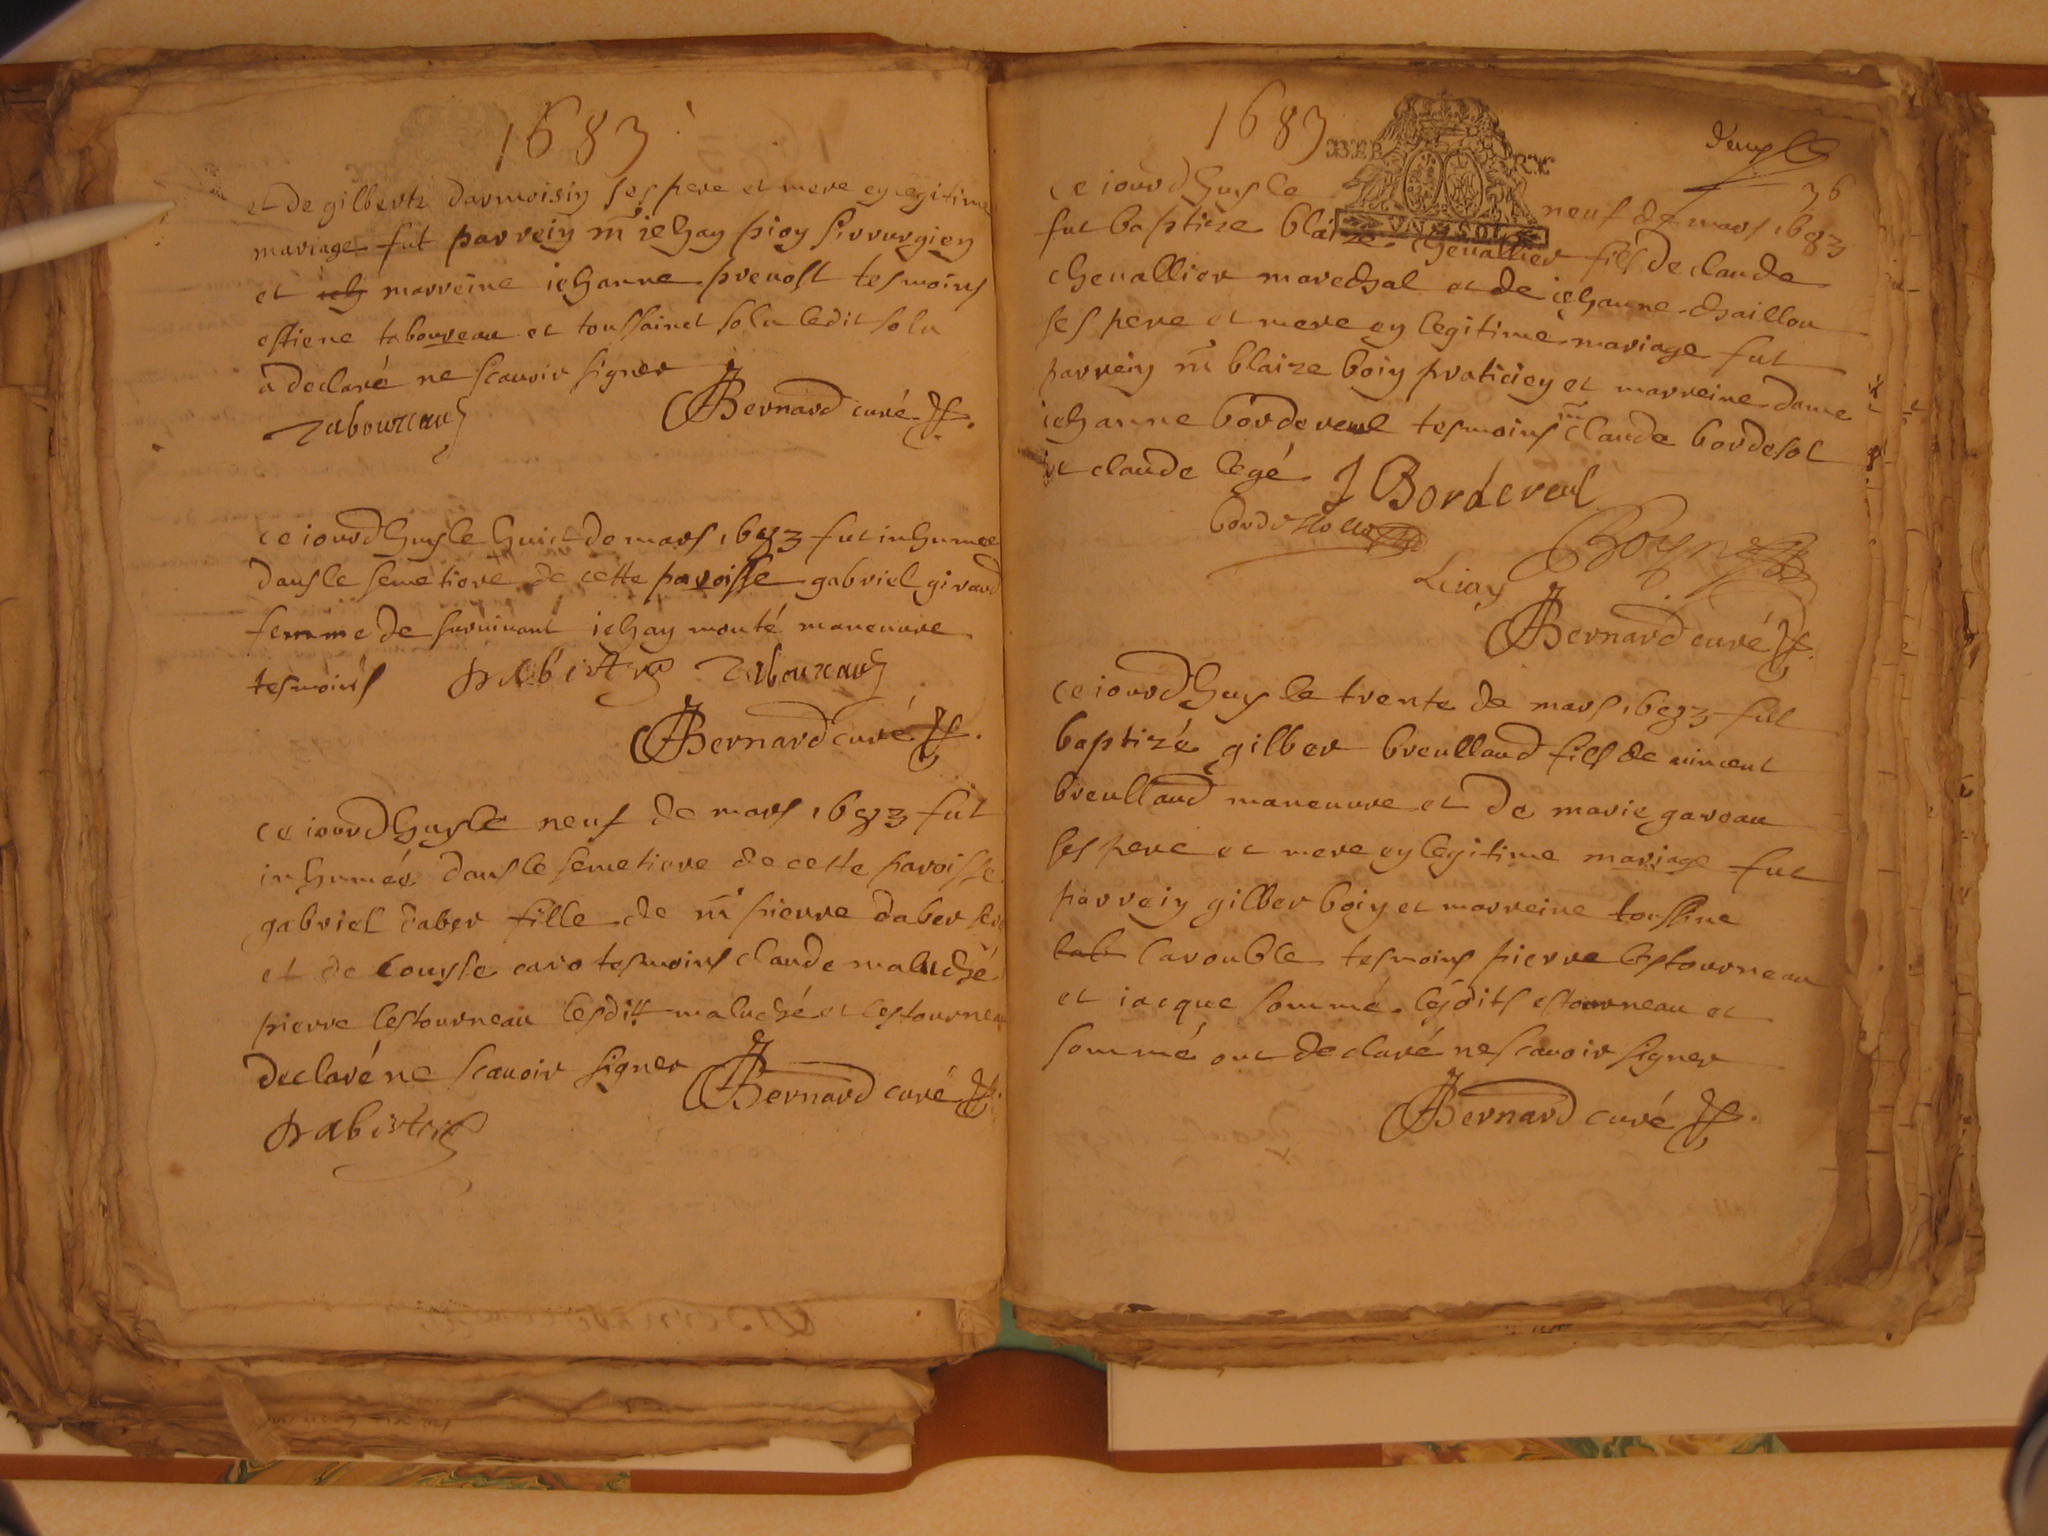 1683
et de gilberte darmoisin ses pere et mere en legitime
mariage fut parrein mre jehan pion sirrurgien
et jeh marreine jehanne prevost tesmoins
estiene taboureau et toussainct sola ledit sola
a declaré ne scavoir signer
Taboureau Bernard curé
ce iourdhuy le huict de mars 1683 fut inhumee
dans le semetiere de cette paroisse gabriel girard
femme de survivant jehan monté maneuvre
tesmoins Taboureau
Bernard curé
ce iourdhuy le neuf de mars 1683 fut
inhumée dans le semetiere de cette paroisse
gabriel daber fille de mre pierre daber
et de cousse caro tesmoins claude maluché
pierre lestourneau lesdits maluché et lestourneau
declaré ne scavoir signer Bernard curé
1683
36
ce iourdhuy le neuf de mars 1683
fut baptize blaize chevallier fils de claude
chevallier marechal et de jehanne chaillou
ses pere et mere en legitime mariage fut
parrein mre blaize boin praticien et marreine dame
jehanne bordereul tesmoins mre claude bordesol
et claude legé J Bordereul
Boyn
Bernard curé
ce iourdhuy le trente de mars 1683 fut
baptizé gilber breulland fils de vincent
breulland maneuvre et de marie gareau
ses pere et mere en legitime mariage fut
parrein gilber boin et marreine tousine
lab larouble tesmoins pierre lestourneau
et iacque sommé lesdits estourneau et
sommé ont declaré ne scavoir signer
Bernard curé